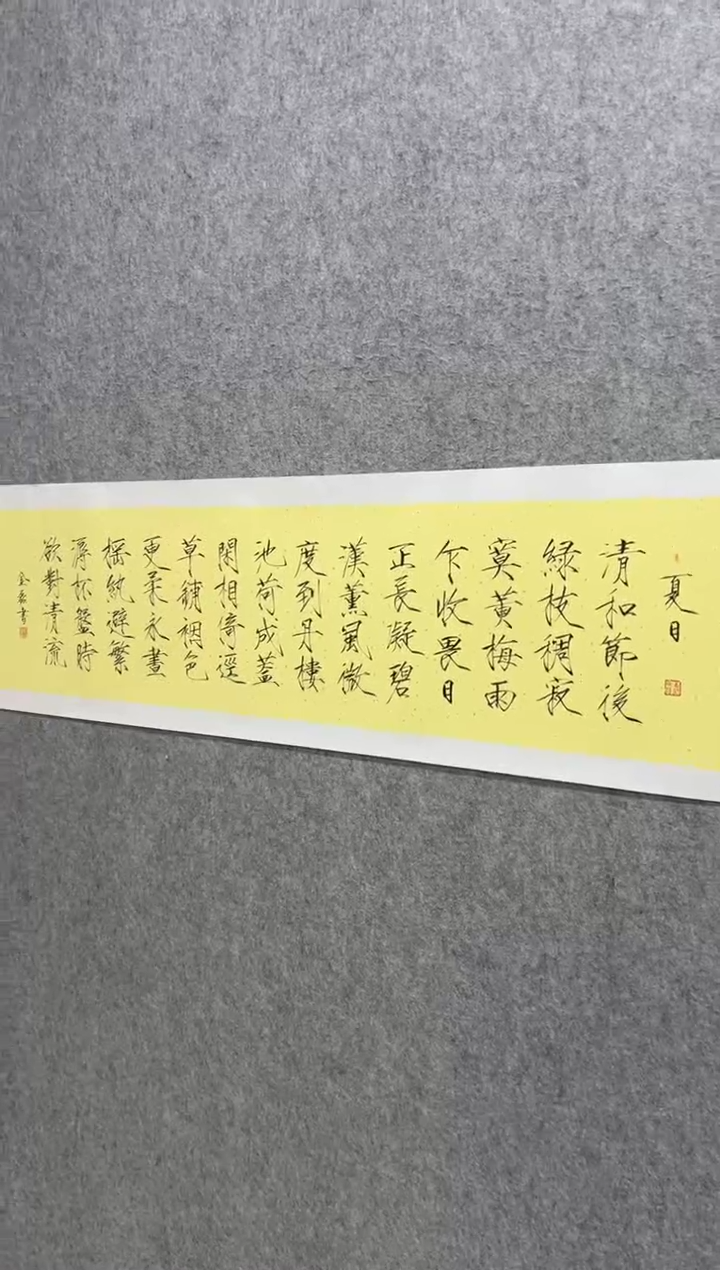 夏日
清和節後
緑枝稠寂
寞黄梅雨
乍收畏日
正長凝碧
漢薫風微
度到丹樓
池荷成蓋
閑相倚逕
草鋪裀色
更柔永晝
摇紈避繁
溽杯盤時
欲對青流
書